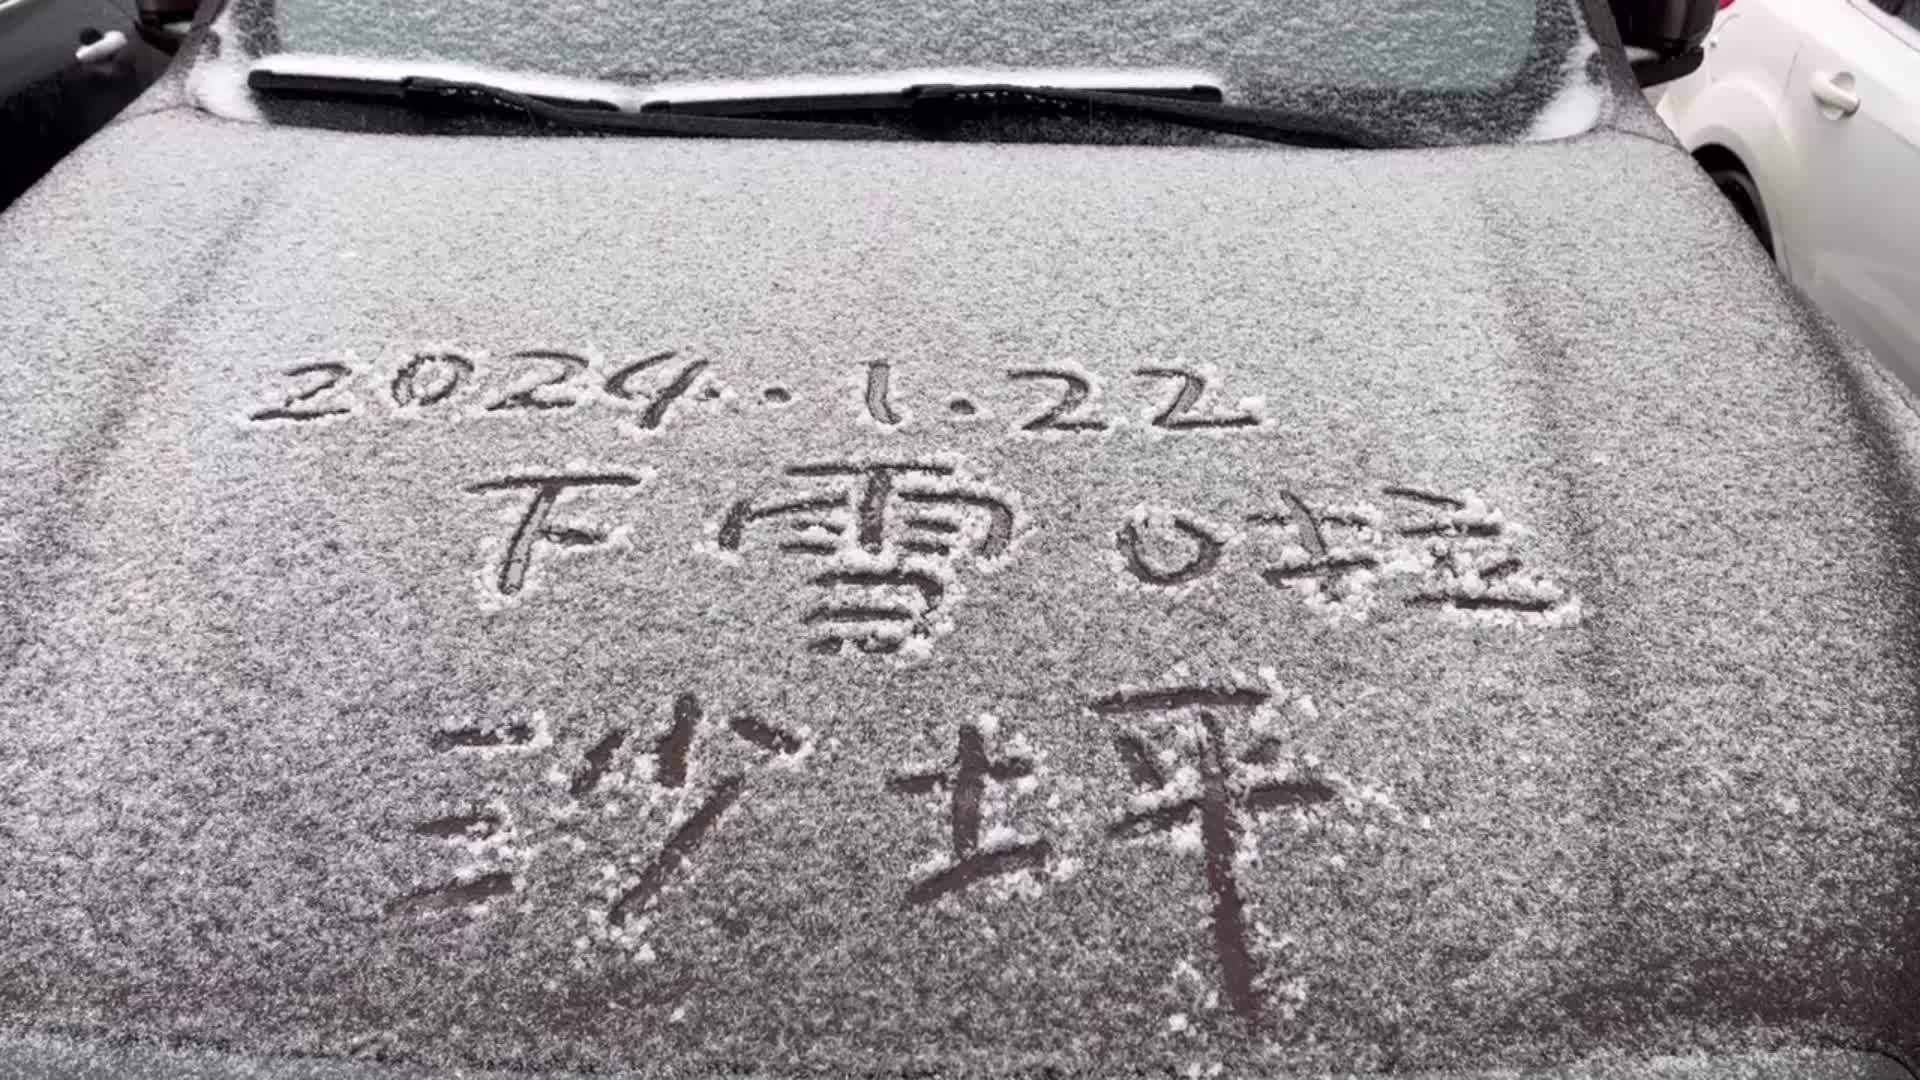 2024.1.22
下雪啦
沙坪